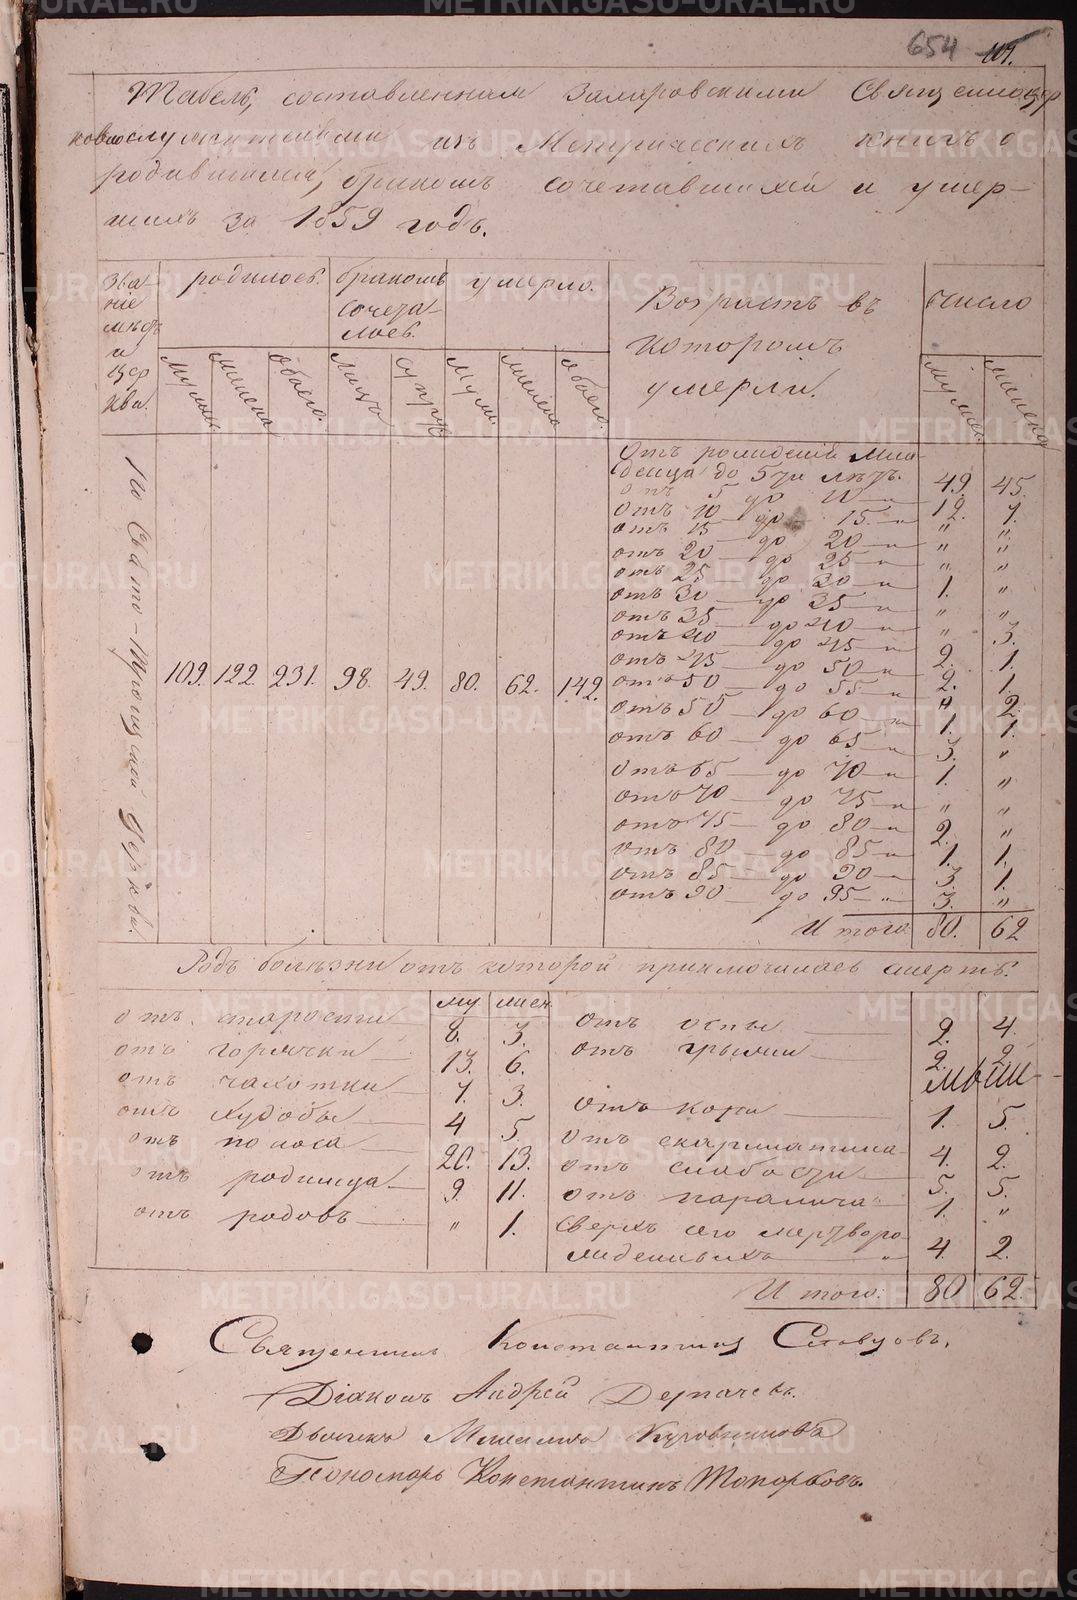 654
Табель, составленная Священноцер
ковнослужителями изъ Метрическихъ книгъ о
родившихся, бракомъ сочетавшихся и умер-
шихъ за 1859 годъ.
Зва-
ніе
мѣстъ
и
цер
ква.
родилось.
бракомъ
сочета-
лось.
умерло.
Возрастъ въ
которомъ
умерли.
Число
Мужеска
Женска
Обоего.
Лицъ
Супруж
Муж.
Женска
Обоего.
Мужеск
Женска
По Свято-Троицкой Церкви.
109. 122. 231. 98. 49. 80. 62. 142.
Отъ рожденія Мла-
денца до 5ти лѣтъ. 49. 45.
отъ 5 до 10 — " 12. 7.
отъ 10 до 15 — " " "
отъ 15 — до 20 — " " "
отъ 20 — до 25 — " " "
отъ 25 — до 30 — " 1. "
отъ 30 — до 35 — " " "
отъ 35 — до 40 — " " 3.
отъ 40 — до 45 — " 2. 1.
отъ 45 — до 50 — " 2. 1.
отъ 50 — до 55 — " " 2.
отъ 50 — до 60 — " 1. 1.
отъ 60 — до 65 — " 3. "
отъ 65 — до 70 — " 1. "
отъ 70 — до 75 — " " "
отъ 75 — до 80 — " 2. "
отъ 80 — до 85 — " 1. 1.
отъ 85 — до 90 — " 3. 1.
отъ 90 — до 95 — " 3. "
Итого. 80. 62
Родъ болѣзни отъ которой приключилась смерть.
му женс
отъ старости 8. 3.
отъ горячки — 13. 6.
отъ чахотки — 7. 3.
отъ худобы — 4 5.
отъ поноса — 20. 13.
отъ родимца — 9. 11.
отъ родовъ — " 1.
отъ оспы — 2. 4.
отъ грыжи — 2. 2.
отъ кори — 1. 5.
отъ скарлатина 4. 2.
отъ слабости 5. 5.
отъ паралича 1. "
Сверхъ сего мертворо
жденныхъ — " 4. 2.
Итого. 80 62.
Священникъ Константинъ
Діаконъ Андрей Дерпачевъ.
Дьячекъ
Пономарь Константинъ Топорковъ.
METRIKI.GASO-URAL.RU